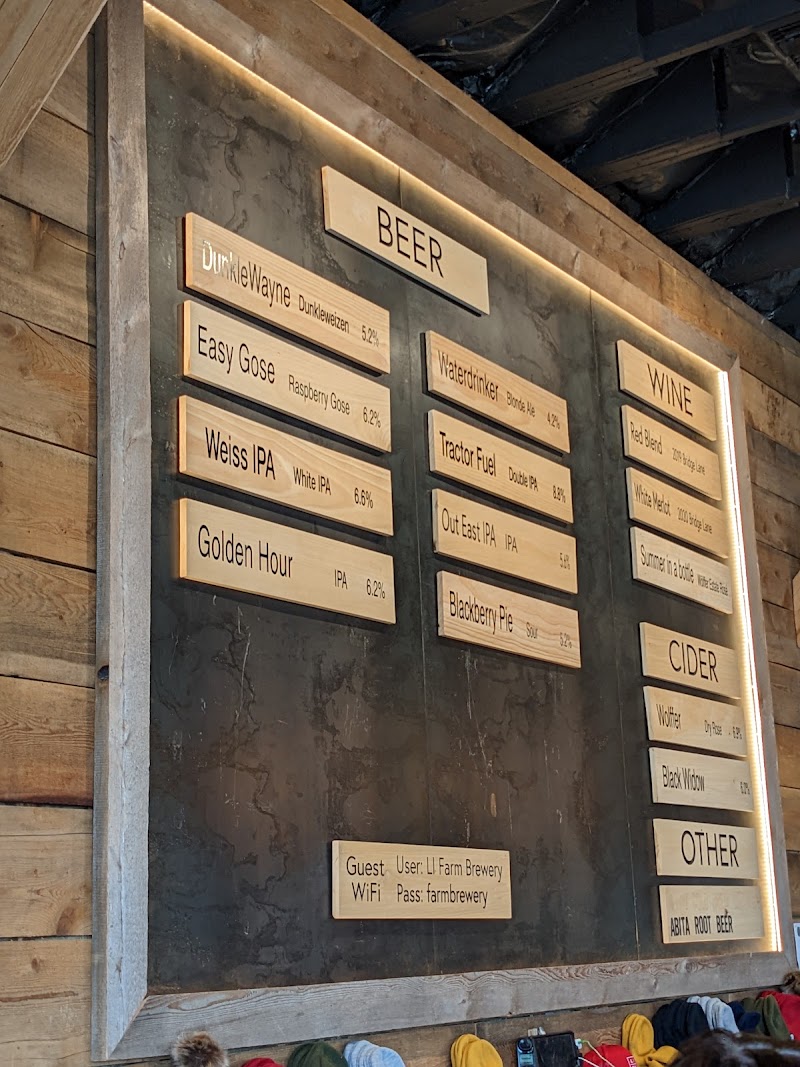 BEER
DunkleWayne Dunkleweizen 5.2%
Easy Gose Raspberry Gose 6.2%
Weiss IPA White IPA 6.6%
Golden Hour IPA 6.2%
Waterdrinker Blonde Ale 4.2%
Tractor Fuel Double IPA 8.8%
Out East IPA IPA 5.6%
Blackberry Pie Sour 5.2%
WINE
Red Blend 2019 Bridge Lane
White Merlot 2020 Bridge Lane
Summer in a bottle Wolffer Estate Rose
CIDER
Wolffer Dry Rose 6.9%
Black Widow 6.0%
OTHER
ABITA ROOT BEER
Guest WiFi
User: LI Farm Brewery
Pass: farmbrewery